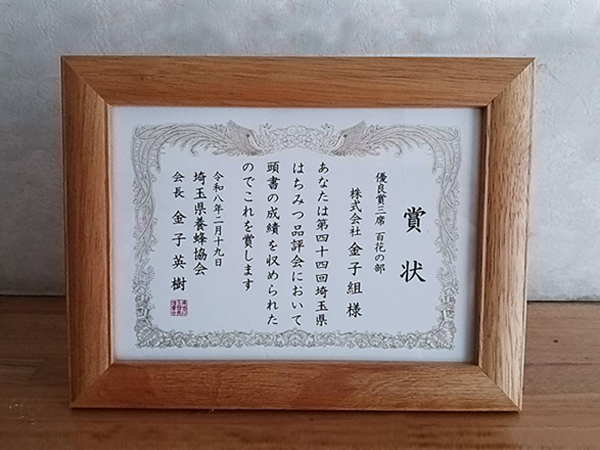 賞状
優良賞三席 百花の部
株式会社 金子組 様
あなたは第四十四回埼玉県
はちみつ品評会において
頭書の成績を収められた
のでこれを賞します
令和八年二月十九日
埼玉県養蜂協会
会長 金子英樹